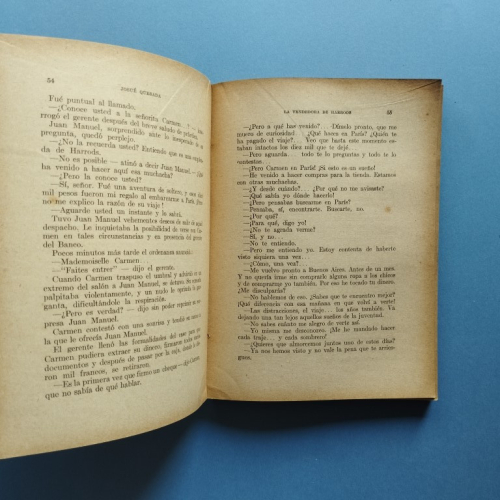 54
JOSUÉ QUESADA
Fué puntual al llamado.
—¿Conoce usted a la señorita Carmen...? — inte-
rrogó el gerente después del breve saludo de práctica.
Juan Manuel, sorprendido ante lo inesperado de la
pregunta, quedó perplejo.
—¿No la recuerda usted? Entiendo que es una empleada
de Harrods.
—No es posible — atinó a decir Juan Manuel
ha venido a hacer aquí esa muchacha?
—¿Pero la conoce usted?
—Sí, señor. Fué una aventura de soltero, y
mil pesos fueron mi regalo al embarcarme a París. Pero
no me explico la razón de su viaje.
—Aguarde usted un instante y la salvi.
Tuvo Juan Manuel vehementes deseos de salir del
despacho. Le inquietaba la posibilidad de verse con Car-
men en tales circunstancias y en presencia del gerente
del Banco.
Pocos minutos más tarde el ordenanza anunció:
—Mademoiselle Carmen...
—"Faites entrer" — dijo el gerente.
Cuando Carmen traspuso el umbral y advirtió en el
extremo del salón a Juan Manuel, se detuvo. Su corazón
palpitaba violentamente, y un nudo le oprimió la gar-
ganta, dificultándole la respiración.
—¿Pero es verdad? — dijo sin poder reprimir su sor-
presa Juan Manuel.
Carmen contestó con una sonrisa y tendió su mano a
la que le ofrecía Juan Manuel.
El gerente llenó las formalidades del caso para que
Carmen pudiera extraer su dinero, firmaron todos los
documentos y después de pasar por la caja, donde
ron mil francos, se retiraron.
—Es la primera vez que firmo un cheque — dijo Carmen
que no sabía de qué hablar.
LA VENDEDORA DE HARRODS
55
—¿Pero a qué has venido? Dímelo pronto, que me
muero de curiosidad. ¿Qué haces en París? ¿Quién te
ha pagado el viaje? Creo que hasta este momento es-
taban intactos los diez mil que te dejé.
—Pero aguarda... todo te lo preguntas y todo te lo
contestas.
—¡Pero Carmen en París! ¡Si esto es un sueño!
—He venido a hacer compras para la tienda. Estamos
aquí otras muchachas.
—¿Y desde cuándo? ¿Por qué no me avisaste?
—¡Qué sabía yo dónde hacerlo!
—¿Pero pensabas buscarme en París?
—Pensaba, sí, encontrarte. Buscarte, no.
—¿Por qué?
—¡Para qué, digo yo!
—¿No te agrada verme?
—Sí, y no.
—No te entiendo.
—Pero me entiendo yo. Estoy contenta de haberte
visto siquiera una vez...
—¿Cómo, una vez?...
—Me vuelvo pronto a Buenos Aires. Antes de un mes.
Y no quería irme sin comprarle alguna ropa a los chicos
y de comprarme yo también. Por eso fué lo de tocar tu dinero.
¿Me disculparás?
—No hablemos de eso. ¿Sabes que te encuentro mejor?
¡Qué diferencia con esa mañana en que volví a verte!
—Las distracciones, el viaje... los años también. Va
dejando una tan lejos aquellos sueños de la juventud.
—No sabes cuánto me alegro de verte así.
—Yo misma me desconozco. ¿Me he mandado hacer
cada traje... y cada sombrero!
—¿Quieres que almorcemos juntos uno de estos días?
—Ya nos hemos visto y no vale la pena que te arries-
gues.